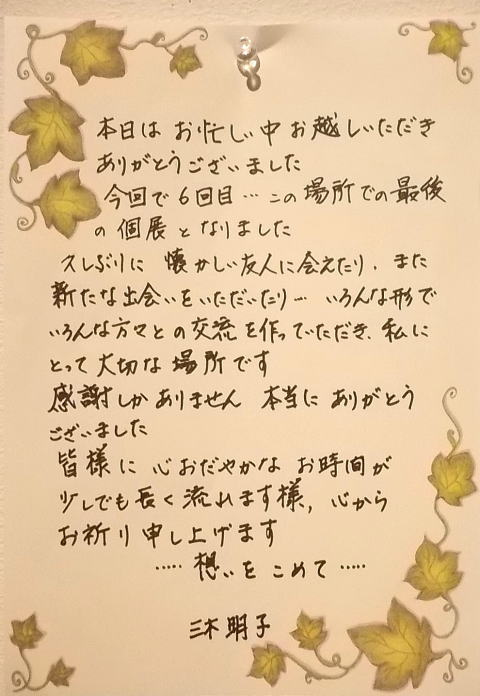 本日は お忙しい中 お越しいただき
ありがとうございました
今回で 6回目… この場所での最後
の個展となりました
久しぶりに 懐かしい友人に会えたり、また
新たな出会いをいただいたり… いろんな形で
いろんな方々との交流を作っていただき、私に
とって大切な場所です
感謝しかありません 本当にありがとう
ございました
皆様に 心おだやかな お時間が
少しでも長く流れます様、心から
お祈り申し上げます
…… 想いをこめて ……
三木明子